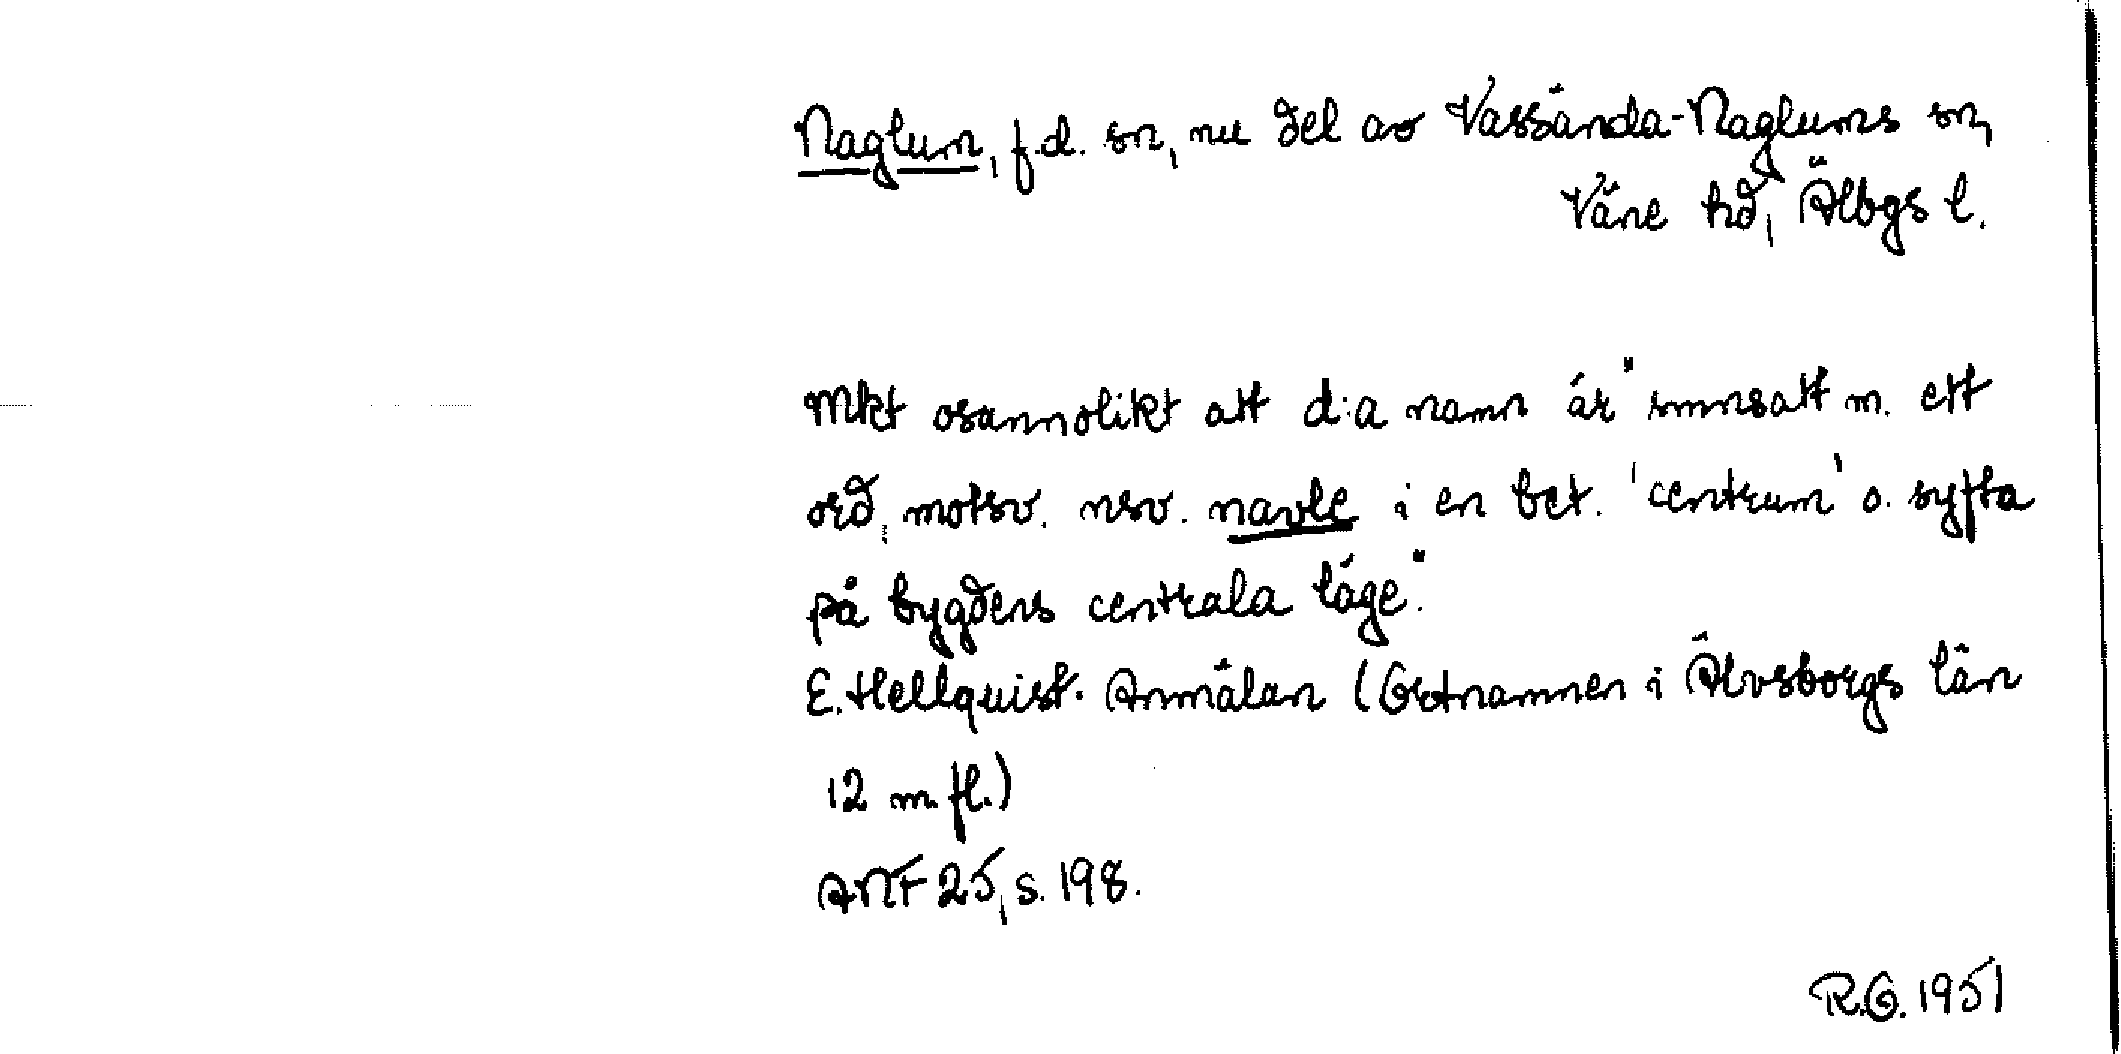 Naglum, f.d. sn, nu del av Vassända-Naglums sn,
Väne hd, Älbgs l.
Mkt osannolikt att d:a namn är "smnsatt m. ett
ord, motsv. nsv. navle i en bet. 'centrum' o. syfta
på bygdens centrala läge."
E. Hellquist. Anmälan (Ortnamnen i Älvsborgs län
12 m. fl.)
ANF 25, s. 198.
R.G. 1951